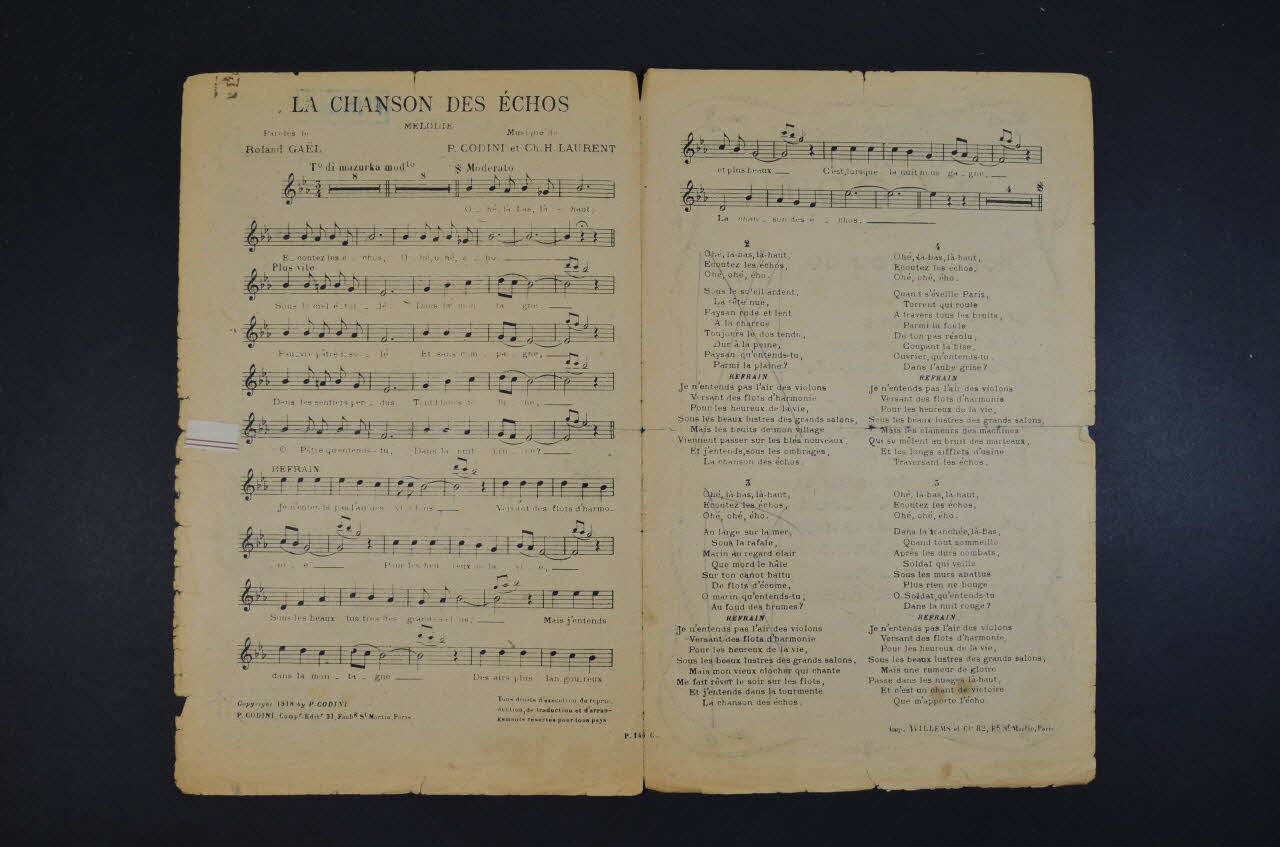 LA CHANSON DES ÉCHOS
MÉLODIE
Paroles de
Roland GAËL
Musique de
P. CODINI et Ch. H. LAURENT
Tº di mazurka modto
Moderato
8 8
O_hé, là-bas, là_haut,
E_coutez les é_chos, O_hé, o_hé,
Plus vite
Sous le ciel é_toi_lé Dans la mon_ta_gne
Pau_vre pâtre i_so_lé Et sans com_pa_gne,
Dans les sentiers per_dus
O Pâtre qu'entends-tu, Dans la nuit
REFRAIN
Je n'entends pas l'air des vi_olons Versant des flots d'harmo_
_ni_e Pour les heu_reux de la vi_e,
Sous les beaux lus_tres des grands salons, Mais j'entends
dans la mon_ta_gne Des airs plus lan_gou_reux
Copyright 1918 by P. CODINI
P. CODINI, Compr Editr 31, Faubg St Martin, Paris
Tous droits d'exécution de repro-
duction, de traduction et d'arran-
gements réservés pour tous pays
et plus beaux C'est, lorsque la nuit nous ga_gne,
4
La chan_son des é_chos.
2
Ohé, là-bas, là-haut,
Ecoutez les échos,
Ohé, ohé, ého.
Sous le soleil ardent,
La tête nue,
Paysan rude et lent
A la charrue
Toujours le dos tendu,
Dur à la peine,
Paysan qu'entends-tu,
Parmi la plaine?
REFRAIN
Je n'entends pas l'air des violons
Versant des flots d'harmonie
Pour les heureux de la vie,
Sous les beaux lustres des grands salons,
Mais les bruits de mon village
Viennent passer sur les blés nouveaux.
Et j'entends, sous les ombrages,
La chanson des échos.
3
Ohé, là-bas, là-haut,
Ecoutez les échos,
Ohé, ohé, ého.
Au large sur la mer,
Sous la rafale,
Marin au regard clair
Que mord le hâle
Sur ton canot battu
De flots d'écume,
O marin qu'entends-tu,
Au fond des brumes?
REFRAIN
Je n'entends pas l'air des violons
Versant des flots d'harmonie
Pour les heureux de la vie,
Sous les beaux lustres des grands salons,
Mais mon vieux clocher qui chante
Me fait rêver le soir sur les flots,
Et j'entends dans la tourmente
La chanson des échos.
4
Ohé, là-bas, là-haut,
Ecoutez les échos,
Ohé, ohé, ého.
Quand s'éveille Paris,
Torrent qui roule
A travers tous les bruits,
Parmi la foule
De ton pas résolu,
Coupant la bise,
Ouvrier, qu'entends-tu
Dans l'aube grise?
REFRAIN
Je n'entends pas l'air des violons
Versant des flots d'harmonie
Pour les heureux de la vie,
Sous les beaux lustres des grands salons,
Mais les clameurs des machines
Qui se mêlent au bruit des marteaux,
Et les longs sifflets d'usine
Traversant les échos.
5
Ohé, là-bas, là-haut,
Ecoutez les échos,
Ohé, ohé, ého.
Dans la tranchée, là-bas,
Quand tout sommeille
Après les durs combats,
Soldat qui veille
Sous les murs abattus
Plus rien ne bouge
O Soldat, qu'entends-tu
Dans la nuit rouge?
REFRAIN
Je n'entends pas l'air des violons
Versant des flots d'harmonie
Pour les heureux de la vie,
Sous les beaux lustres des grands salons,
Mais une rumeur de gloire
Passe dans les nuages là-haut,
Et c'est un chant de victoire
Que m'apporte l'écho.
Imp. WILLEMS et Cie 82, Fg St Martin, Paris